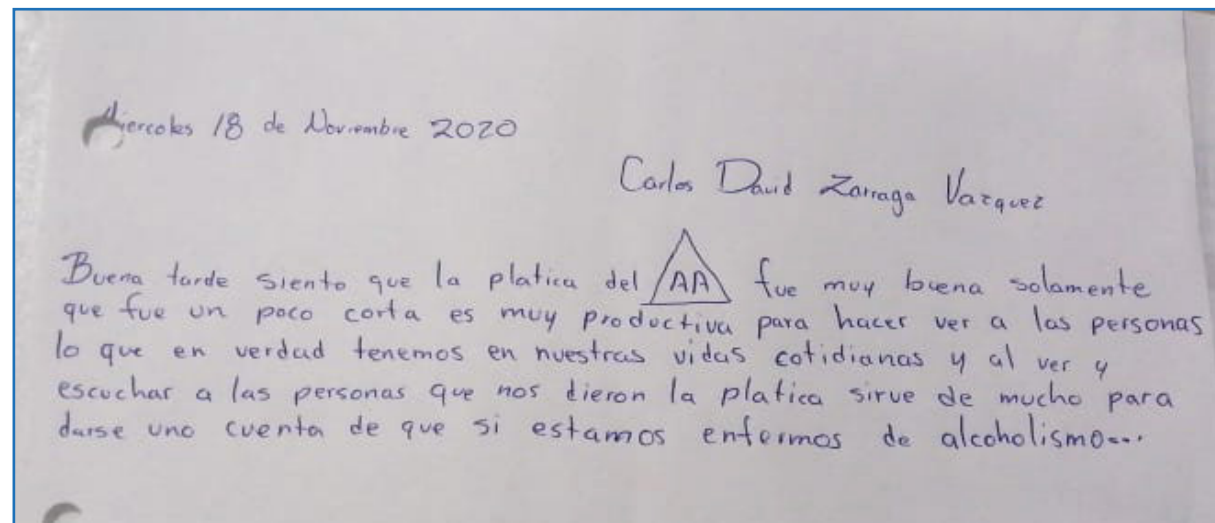 Miercoles 18 de Noviembre 2020
Carlos David Zarraga Vazquez
Buena tarde siento que la platica del AA fue muy buena solamente
que fue un poco corta es muy productiva para hacer ver a las personas
lo que en verdad tenemos en nuestras vidas cotidianas y al ver y
escuchar a las personas que nos dieron la platica sirve de mucho para
darse uno cuenta de que si estamos enfermos de alcoholismo...